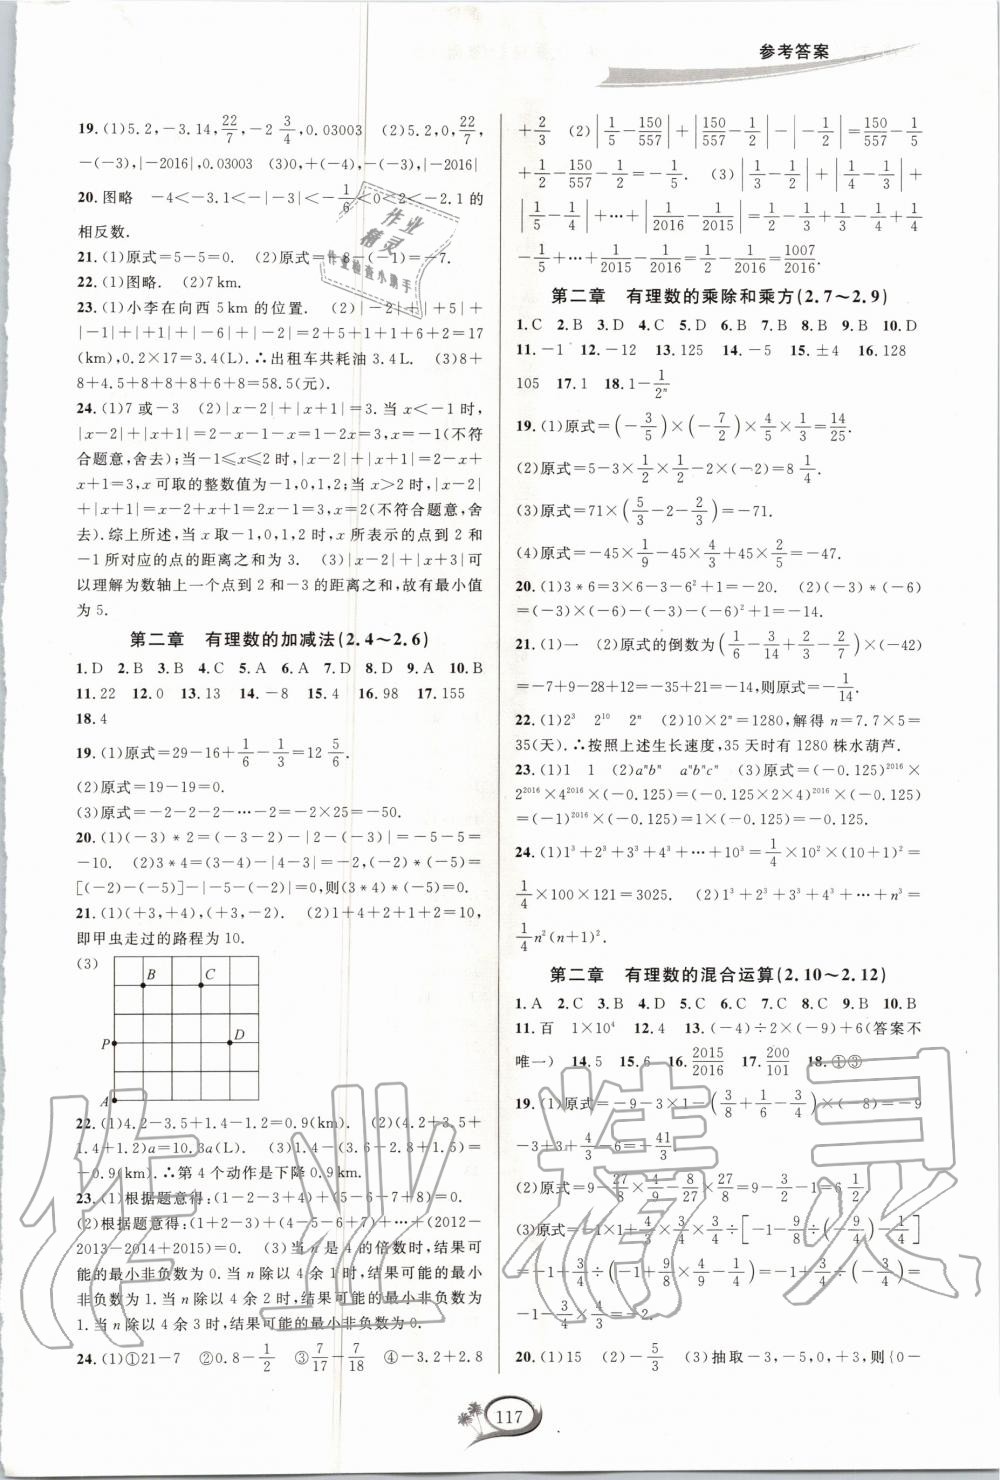 参考答案
19.(1)5.2,-3.14,22/7,-2 3/4,0.03003 (2)5.2,0,22/7,
-(-3),|-2016|,0.03003 (3)0,+(-4),-(-3),|-2016|
20.图略 -4<-3.1<-|-3|<-1/6<0<2<-2.1的
相反数.
21.(1)原式=5-5=0. (2)原式=-8-(-1)=-7.
22.(1)图略. (2)7km.
23.(1)小李在向西5km的位置. (2)|-2|+|+5|+
|-1|+|+1|+|-6|+|-2|=2+5+1+1+6+2=17
(km),0.2×17=3.4(L).∴出租车共耗油3.4L. (3)8+
8+4.5+8+8+8+6+8=58.5(元).
24.(1)7或-3 (2)|x-2|+|x+1|=3.当x<-1时,
|x-2|+|x+1|=2-x-1-x=1-2x=3,x=-1(不符
合题意,舍去);当-1≤x≤2时,|x-2|+|x+1|=2-x+
x+1=3,x可取的整数值为-1,0,1,2;当x>2时,|x-2|
+|x+1|=x-2+x+1=2x-1=3,x=2(不符合题意,舍
去).综上所述,当x取-1,0,1,2时,x所表示的点到2和
-1所对应的点的距离之和为3. (3)|x-2|+|x+3|可
以理解为数轴上一个点到2和-3的距离之和,故有最小值
为5.
第二章 有理数的加减法(2.4~2.6)
1.D 2.B 3.B 4.C 5.A 6.A 7.D 8.D 9.A 10.B
11.22 12.0 13.13 14.-8 15.4 16.98 17.155
18.4
19.(1)原式=29-16+1/6-1/3=12 5/6.
(2)原式=19-19=0.
(3)原式=-2-2-2-…-2=-2×25=-50.
20.(1)(-3)*2=(-3-2)-|2-(-3)|=-5-5=
-10. (2)3*4=(3-4)-|4-3|=-2,(-2)*(-5)=
[(-2)-(-5)]-|-5-(-2)|=0,则(3*4)*(-5)=0.
21.(1)(+3,+4),(+3,-2). (2)1+4+2+1+2=10,
即甲虫走过的路程为10.
(3)
B C
P D
A
22.(1)4.2-3.5+1.4-1.2=0.9(km). (2)(4.2+3.5+
1.4+1.2)a=10.3a(L). (3)1.4-(4.2-3.5+1.6)=
-0.9(km).∴第4个动作是下降0.9km.
23.(1)根据题意得:(1-2-3+4)+(5-6-7+8)=0.
(2)根据题意得:(1-2+3)+(-4+5+6-7)+…+(2012-
2013-2014+2015)=0. (3)当n是4的倍数时,结果可
能的最小非负数为0.当n除以4余1时,结果可能的最小
非负数为1.当n除以4余2时,结果可能的最小非负数为
1.当n除以4余3时,结果可能的最小非负数为0.
24.(1)①21-7 ②0.8-1/2 ③7/17-7/18 ④-3.2+2.8
+2/3 (2)|1/5-150/557|+|150/557-1/2|-|-1/2|=150/557-1/5
+1/2-150/557-1/2=-1/5. (3)|1/3-1/2|+|1/4-1/3|+
|1/5-1/4|+…+|1/2016-1/2015|=1/2-1/3+1/3-1/4+1/4
-1/5+…+1/2015-1/2016=1/2-1/2016=1007/2016.
第二章 有理数的乘除和乘方(2.7~2.9)
1.C 2.B 3.D 4.C 5.D 6.B 7.B 8.B 9.B 10.D
11.-1 12.-12 13.125 14.-5 15.±4 16.128
105 17.1 18.1-1/2ⁿ
19.(1)原式=(-3/5)×(-7/2)×4/5×1/3=14/25.
(2)原式=5-3×1/2×1/2-2×(-2)=8 1/4.
(3)原式=71×(5/3-2-2/3)=-71.
(4)原式=-45×1/9-45×4/3+45×2/5=-47.
20.(1)3*6=3×6-3-6²+1=-20. (2)(-3)*(-6)
=(-3)×(-6)-(-3)-(-6)²+1=-14.
21.(1)一 (2)原式的倒数为(1/6-3/14+2/3-2/7)×(-42)
=-7+9-28+12=-35+21=-14,则原式=-1/14.
22.(1)2³ 2¹⁰ 2ⁿ (2)10×2ⁿ=1280,解得n=7.7×5=
35(天).∴按照上述生长速度,35天时有1280株水葫芦.
23.(1)1 1 (2)aⁿbⁿ aⁿbⁿcⁿ (3)原式=(-0.125)²⁰¹⁶×
2²⁰¹⁶×4²⁰¹⁶×(-0.125)=(-0.125×2×4)²⁰¹⁶×(-0.125)
=(-1)²⁰¹⁶×(-0.125)=1×(-0.125)=-0.125.
24.(1)1³+2³+3³+4³+…+10³=1/4×10²×(10+1)²=
1/4×100×121=3025. (2)1³+2³+3³+…+n³=
1/4n²(n+1)².
第二章 有理数的混合运算(2.10~2.12)
1.A 2.C 3.B 4.D 5.C 6.C 7.C 8.C 9.B 10.B
11.百 1×10⁴ 12.4 13.(-4)÷2×(-9)+6(答案不
唯一) 14.5 15.6 16.2015/2016 17.200/101 18.①③
19.(1)原式=-9-3×1-(3/8+1/6-3/4)×(-8)=-9
-3+3+4/3-6=+41/3.
(2)原式=9-27/8×4/27-8/27×27/4=9-3/2-1=6 1/2.
(3)原式=-1×1+3/4×4/3÷[-1-9/8÷(-9/4)-1/4]
=-1+3/4÷(-9/8×4/9-1/4)=-1+3/4÷(-3/4)=
-1-3/4×4/3=-2.
20.(1)15 (2)-5/3 (3)抽取-3,-5,0,+3,则{0-
117
作业
精灵
作业检查小助手
作业精灵